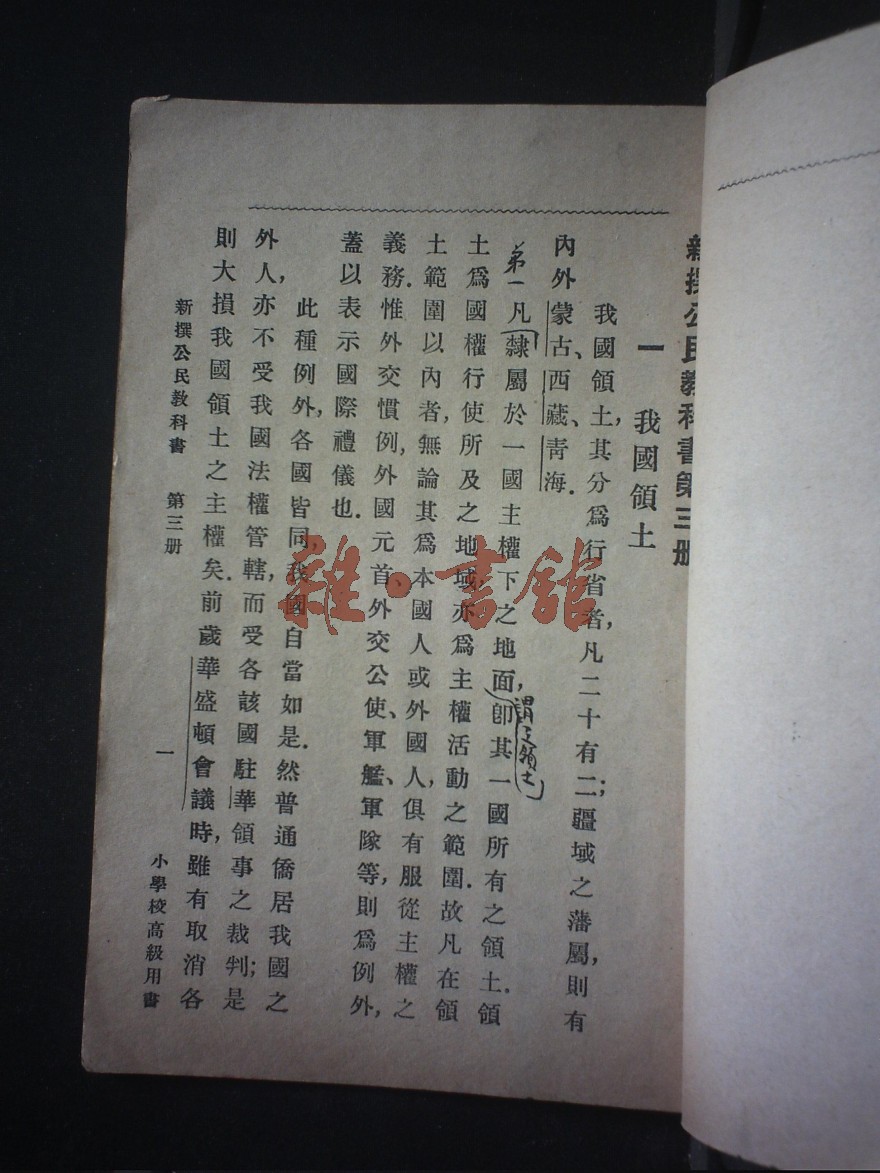 新撰公民教科書第三册
一　我國領土
我國領土，其分爲行省者，凡二十有二；疆域之藩屬，則有
內外蒙古、西藏、青海．
第一凡隸屬於一國主權下之地面，卽其一國所有之領土．領
謂之領土
土爲國權行使所及之地域，亦爲主權活動之範圍．故凡在領
土範圍以內者，無論其爲本國人或外國人，俱有服從主權之
義務．惟外交慣例，外國元首、外交公使、軍艦、軍隊等，則爲例外，
蓋以表示國際禮儀也．
此種例外，各國皆同，我國自當如是．然普通僑居我國之
外人，亦不受我國法權管轄，而受各該國駐華領事之裁判；是
則大損我國領土之主權矣．前歲華盛頓會議時，雖有取消各
新撰公民教科書　第三册　一　小學校高級用書
雜·書館